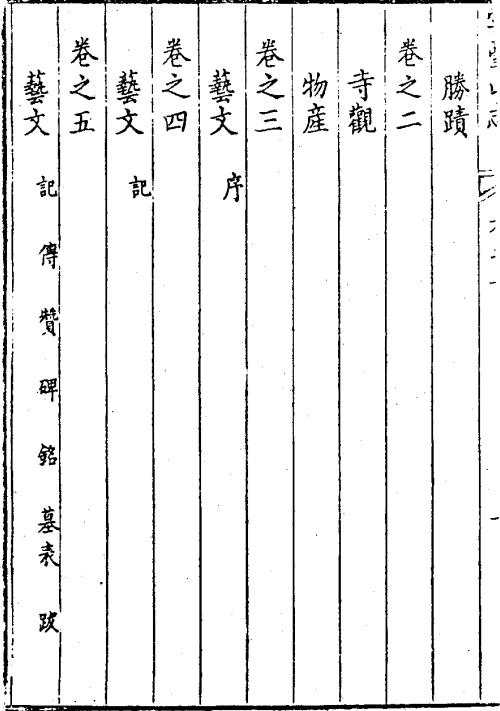 勝蹟
卷之二
寺觀
物產
卷之三
藝文 序
卷之四
藝文 記
卷之五
藝文 記 傳 贊 碑 銘 墓表 跋